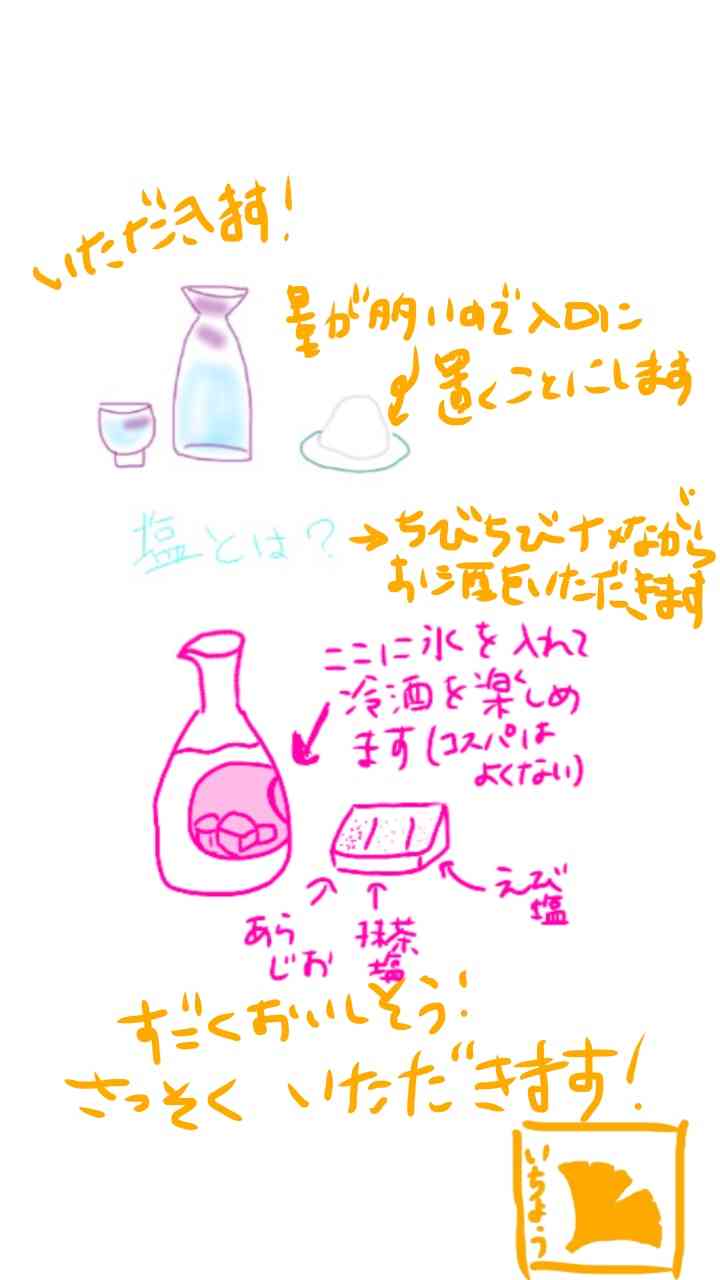 いただきます!
量が多いので入口に
置くことにします
塩とは?
→ちびちびナメながら
お酒をいただきます
ここに氷を入れて
冷酒を楽しめ
ます(コスパは
よくない)
えび
塩
あら
じお
抹茶
塩
すごくおいしそう!
さっそく いただきます!
いちょう